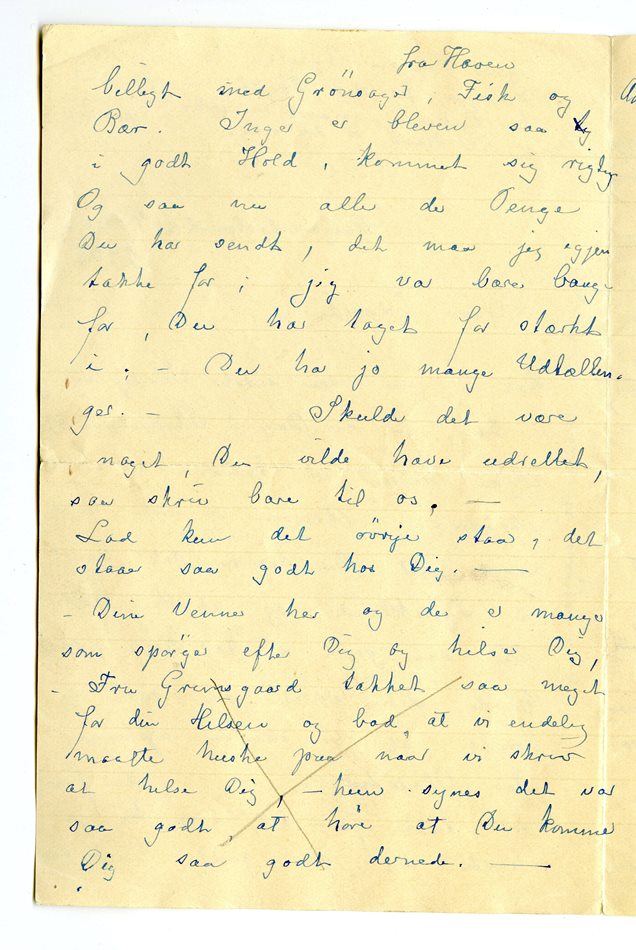 fra Haven
billigt med Grönsager, Fisk og
Bær. Inger er bleven saa
i godt Hold, kommet sig rigtig
Og saa nu alle de Penge
Du har sendt, det maa jeg igjen
takke for; jeg var bare bange
for, Du har taget for stærkt
i; – Du ha jo mange Udtællin-
ger. – Skulde det være
noget, Du vilde have udrettet,
saa skriv bare til os. —
Lad kun det övrige staa, det
staar saa godt hos Dig. —
– Dine Venner her og de er mange
som spörger efter Dig og hilse Dig,
– Fru Grumsgaard takket saa meget
for din Hilsen og bad, at vi endelig
maatte huske paa naar vi skrev
at hilse Dig, – hun synes det var
saa godt, at höre at Du komme
Dig saa godt dernede. —